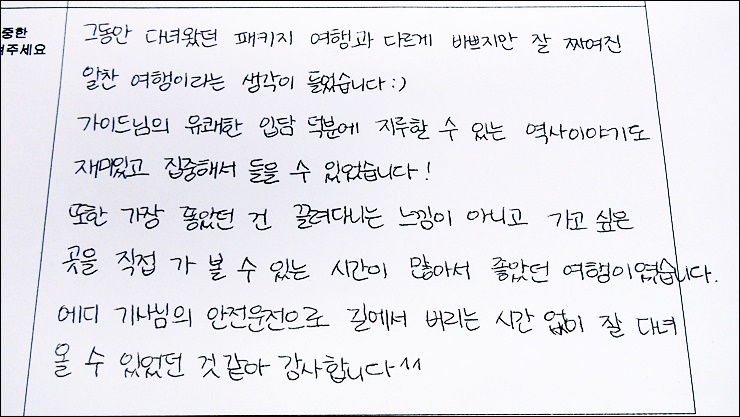 중한
려주세요
그동안 다녀왔던 패키지 여행과 다르게 바쁘지만 잘 짜여진
알찬 여행이라는 생각이 들었습니다:)
가이드님의 유쾌한 입담 덕분에 지루할 수 있는 역사이야기도
재미있고 집중해서 들을 수 있었습니다!
또한 가장 좋았던 건 끌려다니는 느낌이 아니고 가고 싶은
곳을 직접 가 볼 수 있는 시간이 많아서 좋았던 여행이였습니다.
에디 기사님의 안전운전으로 길에서 버리는 시간 없이 잘 다녀
올 수 있었던 것같아 감사합니다^^